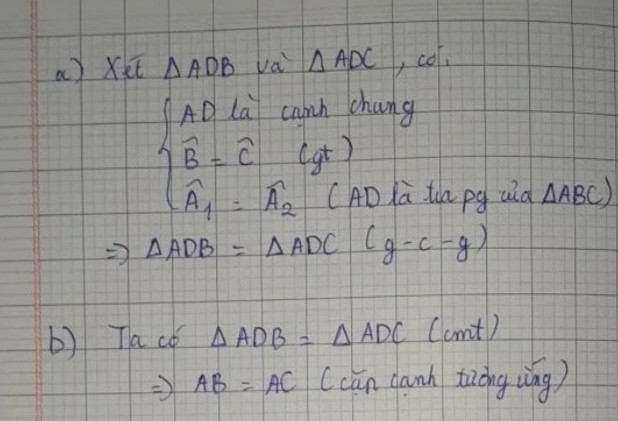 a) Xét ΔADB và ΔADC, có:
AD là cạnh chung
B̂ = Ĉ (gt)
Â₁ = Â₂ (AD là tia pg của ΔABC)
=> ΔADB = ΔADC (g-c-g)
b) Ta có ΔADB = ΔADC (cmt)
=> AB = AC (cặp cạnh tương ứng)